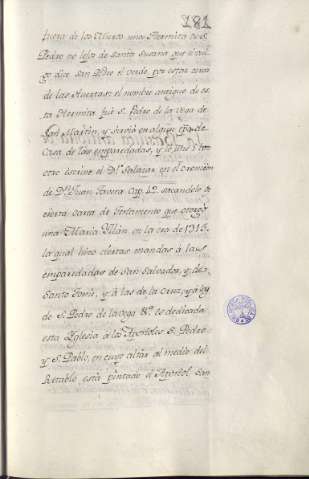 181
fuera de los Muros una Hermita de S.
Pedro no lejos de Santa Susana que el vul-
go dice San Pedro el verde, por estar cerca
de las Huertas: el nombre antiguo de es-
ta Hermita fue S. Pedro de la Vega de
San Martin, y sirvió en algun tpo. de
Casa de las emparedadas, y
otro escrive el Dr. Salazar en el Cronicon
de Dn. Juan Tavera Cap. 12. sacandolo de
cierta carta de testamento que otorgó
una Maria Yllán en la era de 1315.
la qual hizo ciertas mandas à las
emparedadas de San Salvador, y de
Santo Tomé, y à las de la Cruz, y à las
de S. Pedro de la Vega &c. es dedicada
esta Yglesia à los Apostoles S. Pedro
y S. Pablo, en cuyo altar al medio del
Retablo está pintado el Apostol San